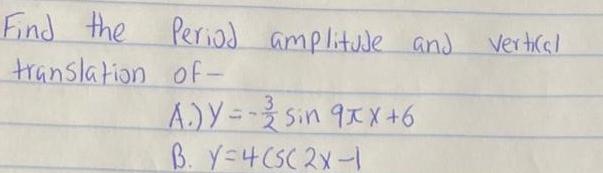 Find the Period amplitude and vertical
translation of-
A.) Y = -3/2 sin 9πx+6
B. Y=4csc2x-1